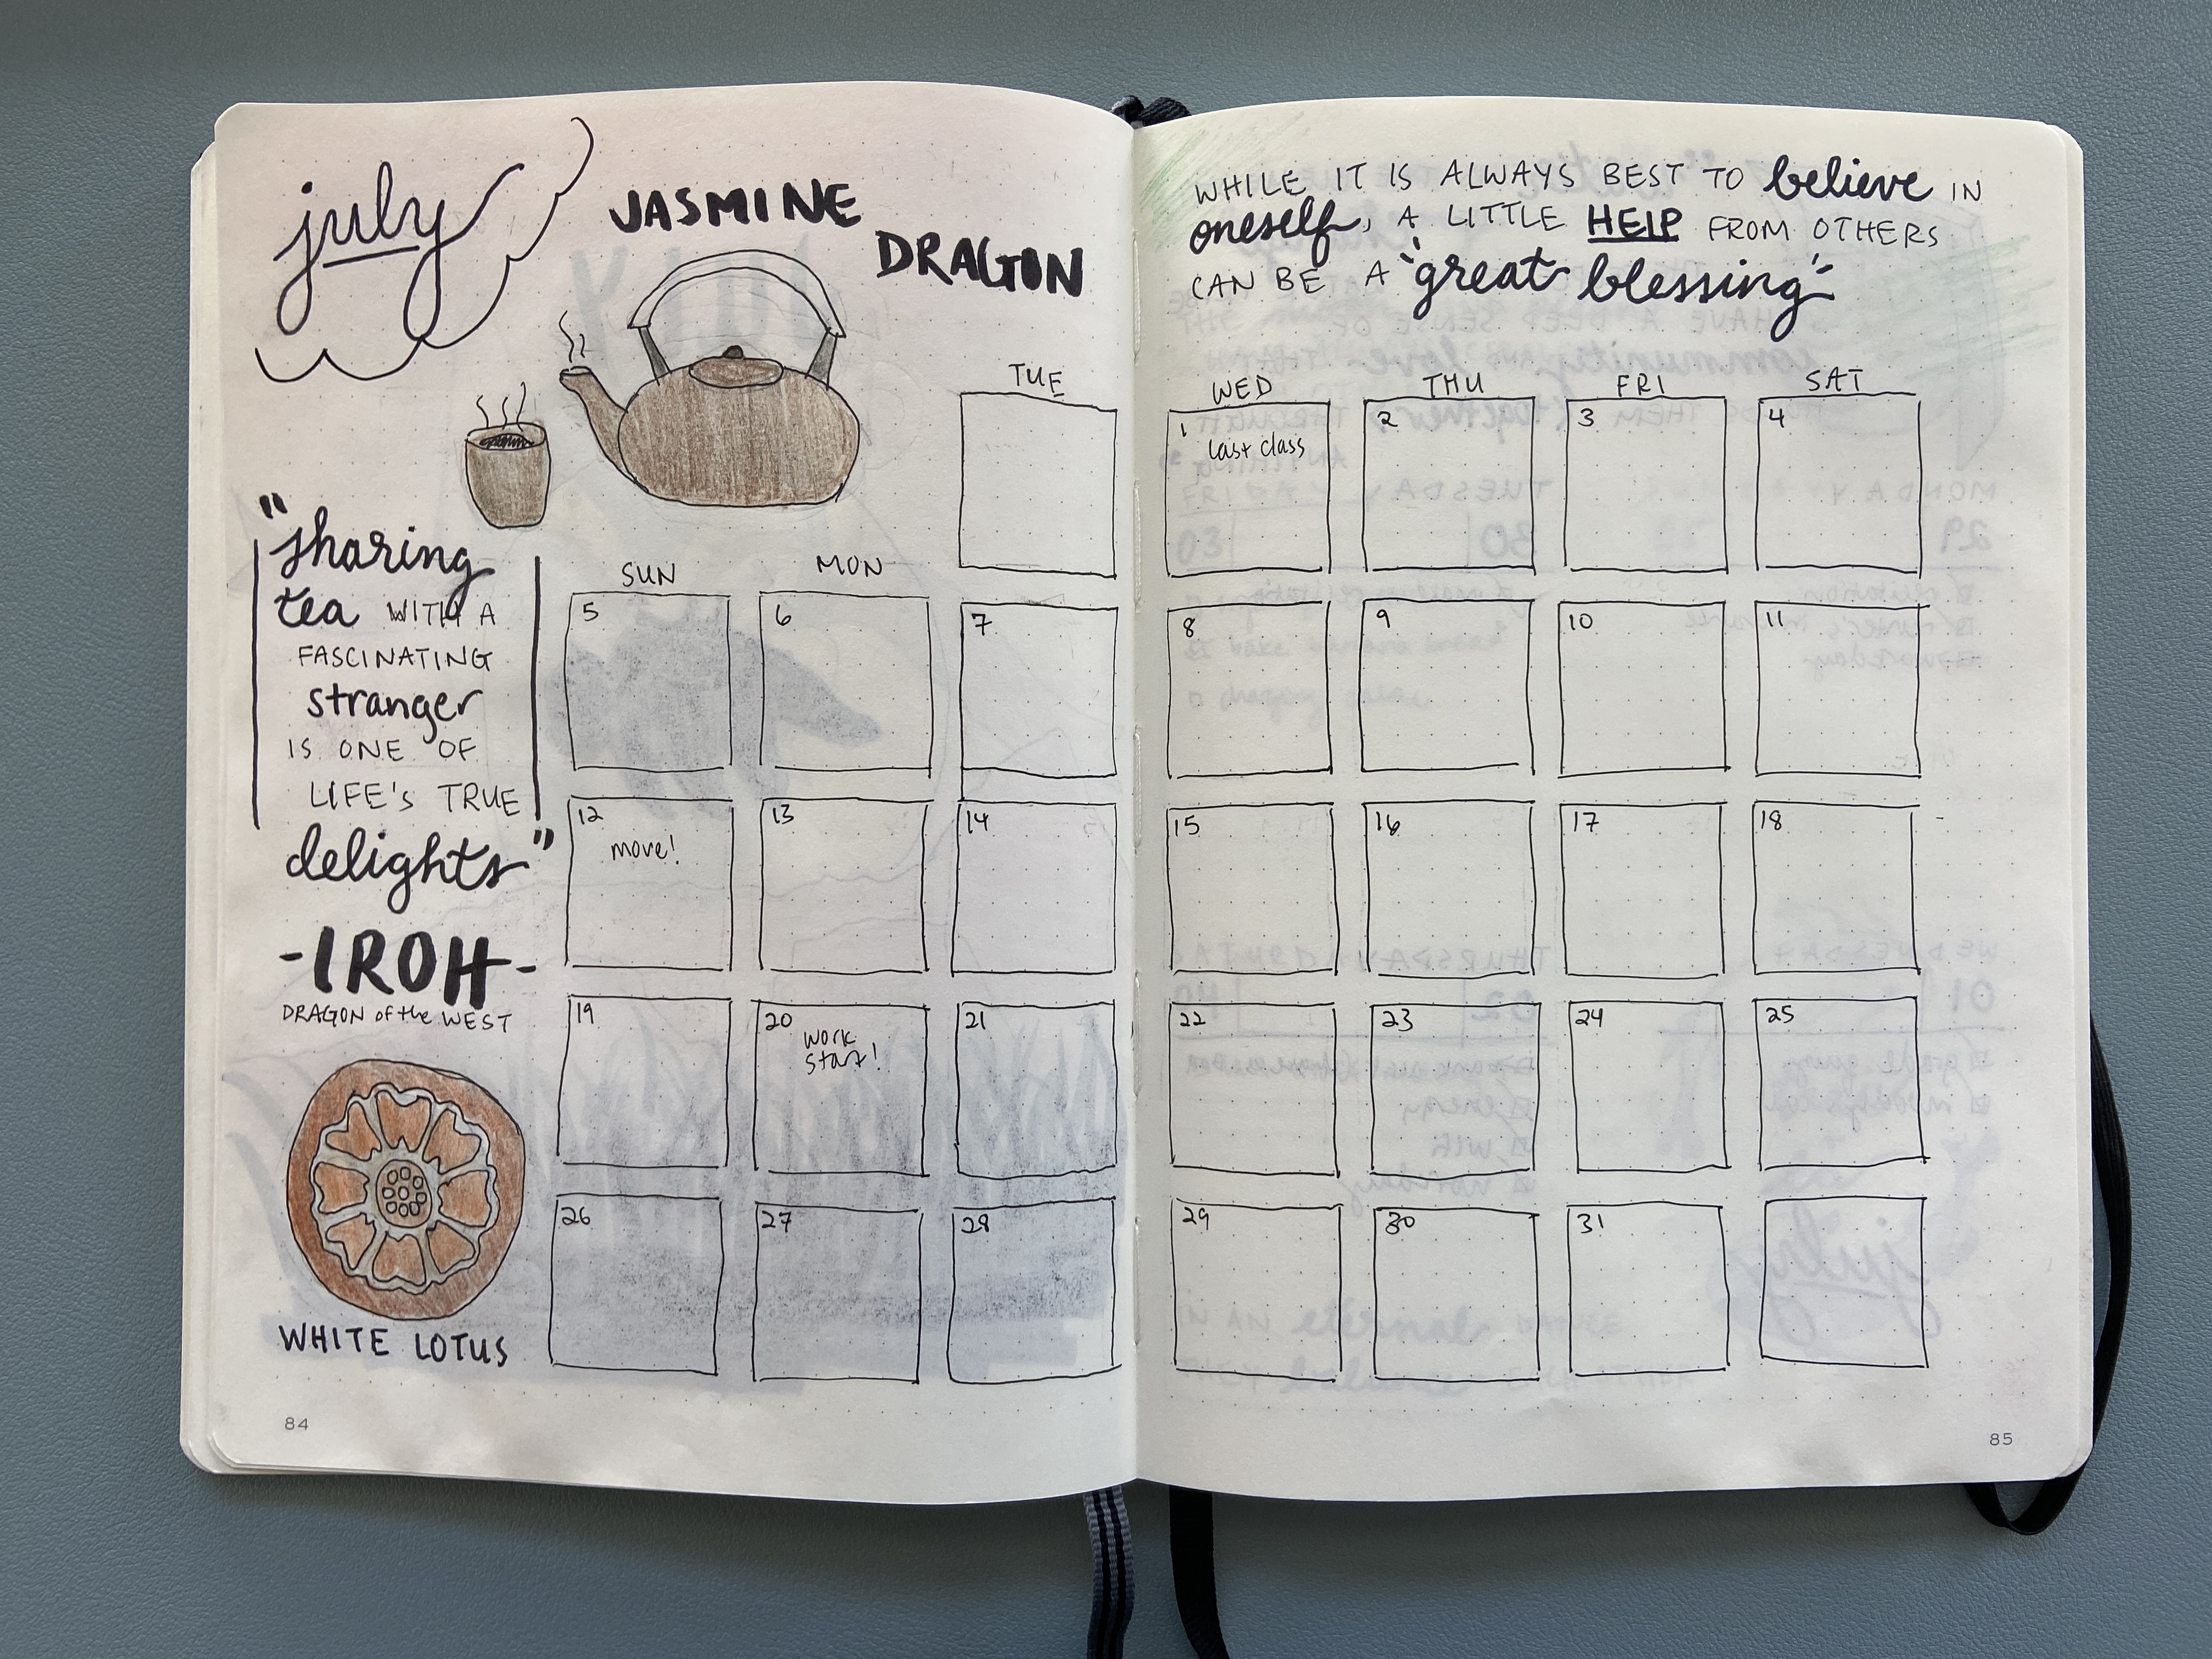 july
JASMINE
DRAGON
"sharing
tea WITH A
FASCINATING
stranger
IS ONE OF
LIFE'S TRUE
delights"
-IROH-
DRAGON of the WEST
WHITE LOTUS
84
WHILE IT IS ALWAYS BEST TO believe IN
oneself, A LITTLE HELP FROM OTHERS
CAN BE A "great blessing"
SUN MON TUE WED THU FRI SAT
1 2 3 4
last class
5 6 7 8 9 10 11
12 13 14 15 16 17 18
move!
19 20 21 22 23 24 25
work
start!
26 27 28 29 30 31
85